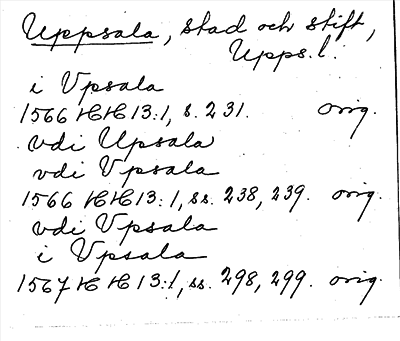 Uppsala, stad och stift,
Upps.l.
i Vpsala
1566 HH 13:1, s. 231. orig.
vdi Upsala
vdi Vpsala
1566 HH 13:1, ss. 238, 239. orig.
vdi Vpsala
i Vpsala
1567 HH 13:1, ss. 298, 299. orig.